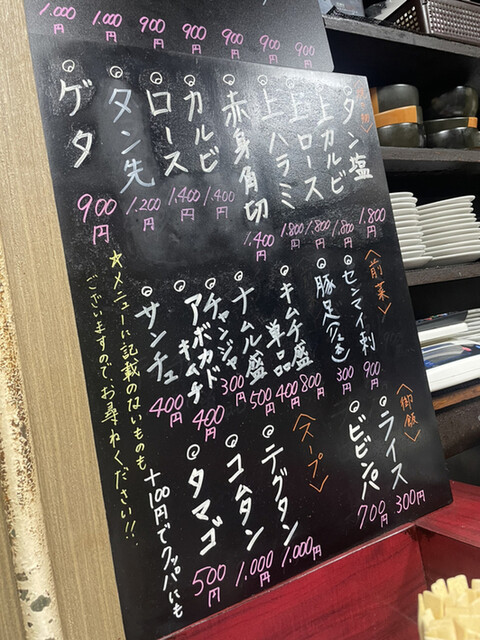 900円
900円
900円
900円
900円
1.000円
1.000円
タン塩 1.800円
上カルビ 1.800円
上ロース 1.800円
上ハラミ 1.800円
赤身角切 1.400円
カルビ 1.400円
ロース 1.400円
タン先 1.200円
ゲタ 900円
〈前菜〉
センマイ刺 900円
豚足 300円
キムチ盛 800円
単品 400円
ナムル盛 500円
チャンジャ 300円
アボカドキムチ 400円
サンチュ 400円
〈御飯〉
ライス 300円
ビビンパ 700円
〈スープ〉
テグタン 1.000円
コムタン 1.000円
タマゴ 500円
+100円でクッパにも
★メニューに記載のないものも
ございますので、お尋ねください!!